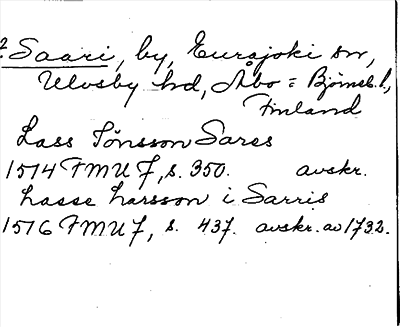 ? Saari, by, Euråjoki sn,
Ulvsby hd, Åbo = Björneb. l.,
Finland
Lass Jönsson Sares
1514 FMU 7, s. 350. avskr.
Lasse Larsson i Sarris
1516 FMU 7, s. 437. avskr. av 1732.